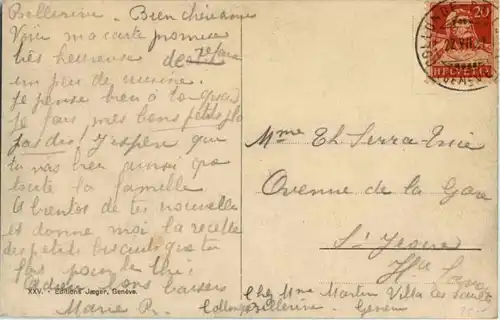 Bellerive. Bien chère amie
Voici ma carte promise
très heureuse de refaire
un peu de cuisine.
Je pense bien à toi quand
je fais mes bons petits pla
J'espère que
tu vas bien ainsi que
toute la famille
A bientôt de tes nouvelles
et donne moi la recette
des petits biscuits que tu
fais pour le thé.
Adieu bons baisers
Marie P.
XXV. - Editions Jaeger, Genève.
20
HELVETIA
Mme Th. Serra
Avenue de la Gare
St Jeoire
Hte Savoie
Chez Mme Martin Villa
Collonge Bellerive - Genève